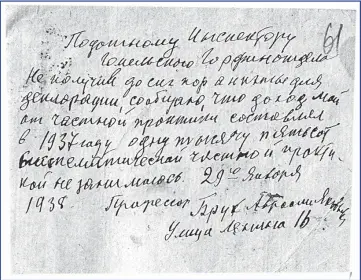 61
Податному Инспектору
Гомельского Горфинотдела
Не получив до сих пор анкеты для
декларации, сообщаю, что доход мой
от частной практики составлял
в 1937 году одну тысячу пятьсот
частной практи-
кой не занималась. 29го января
1938 Профессор Брук
Улица Ленина 1Б